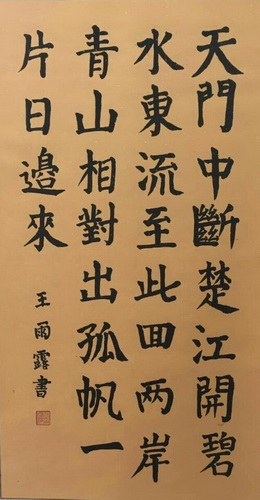 天門中斷楚江開碧
水東流至此回两岸
青山相對出孤帆一
片日邉來
王雨露書